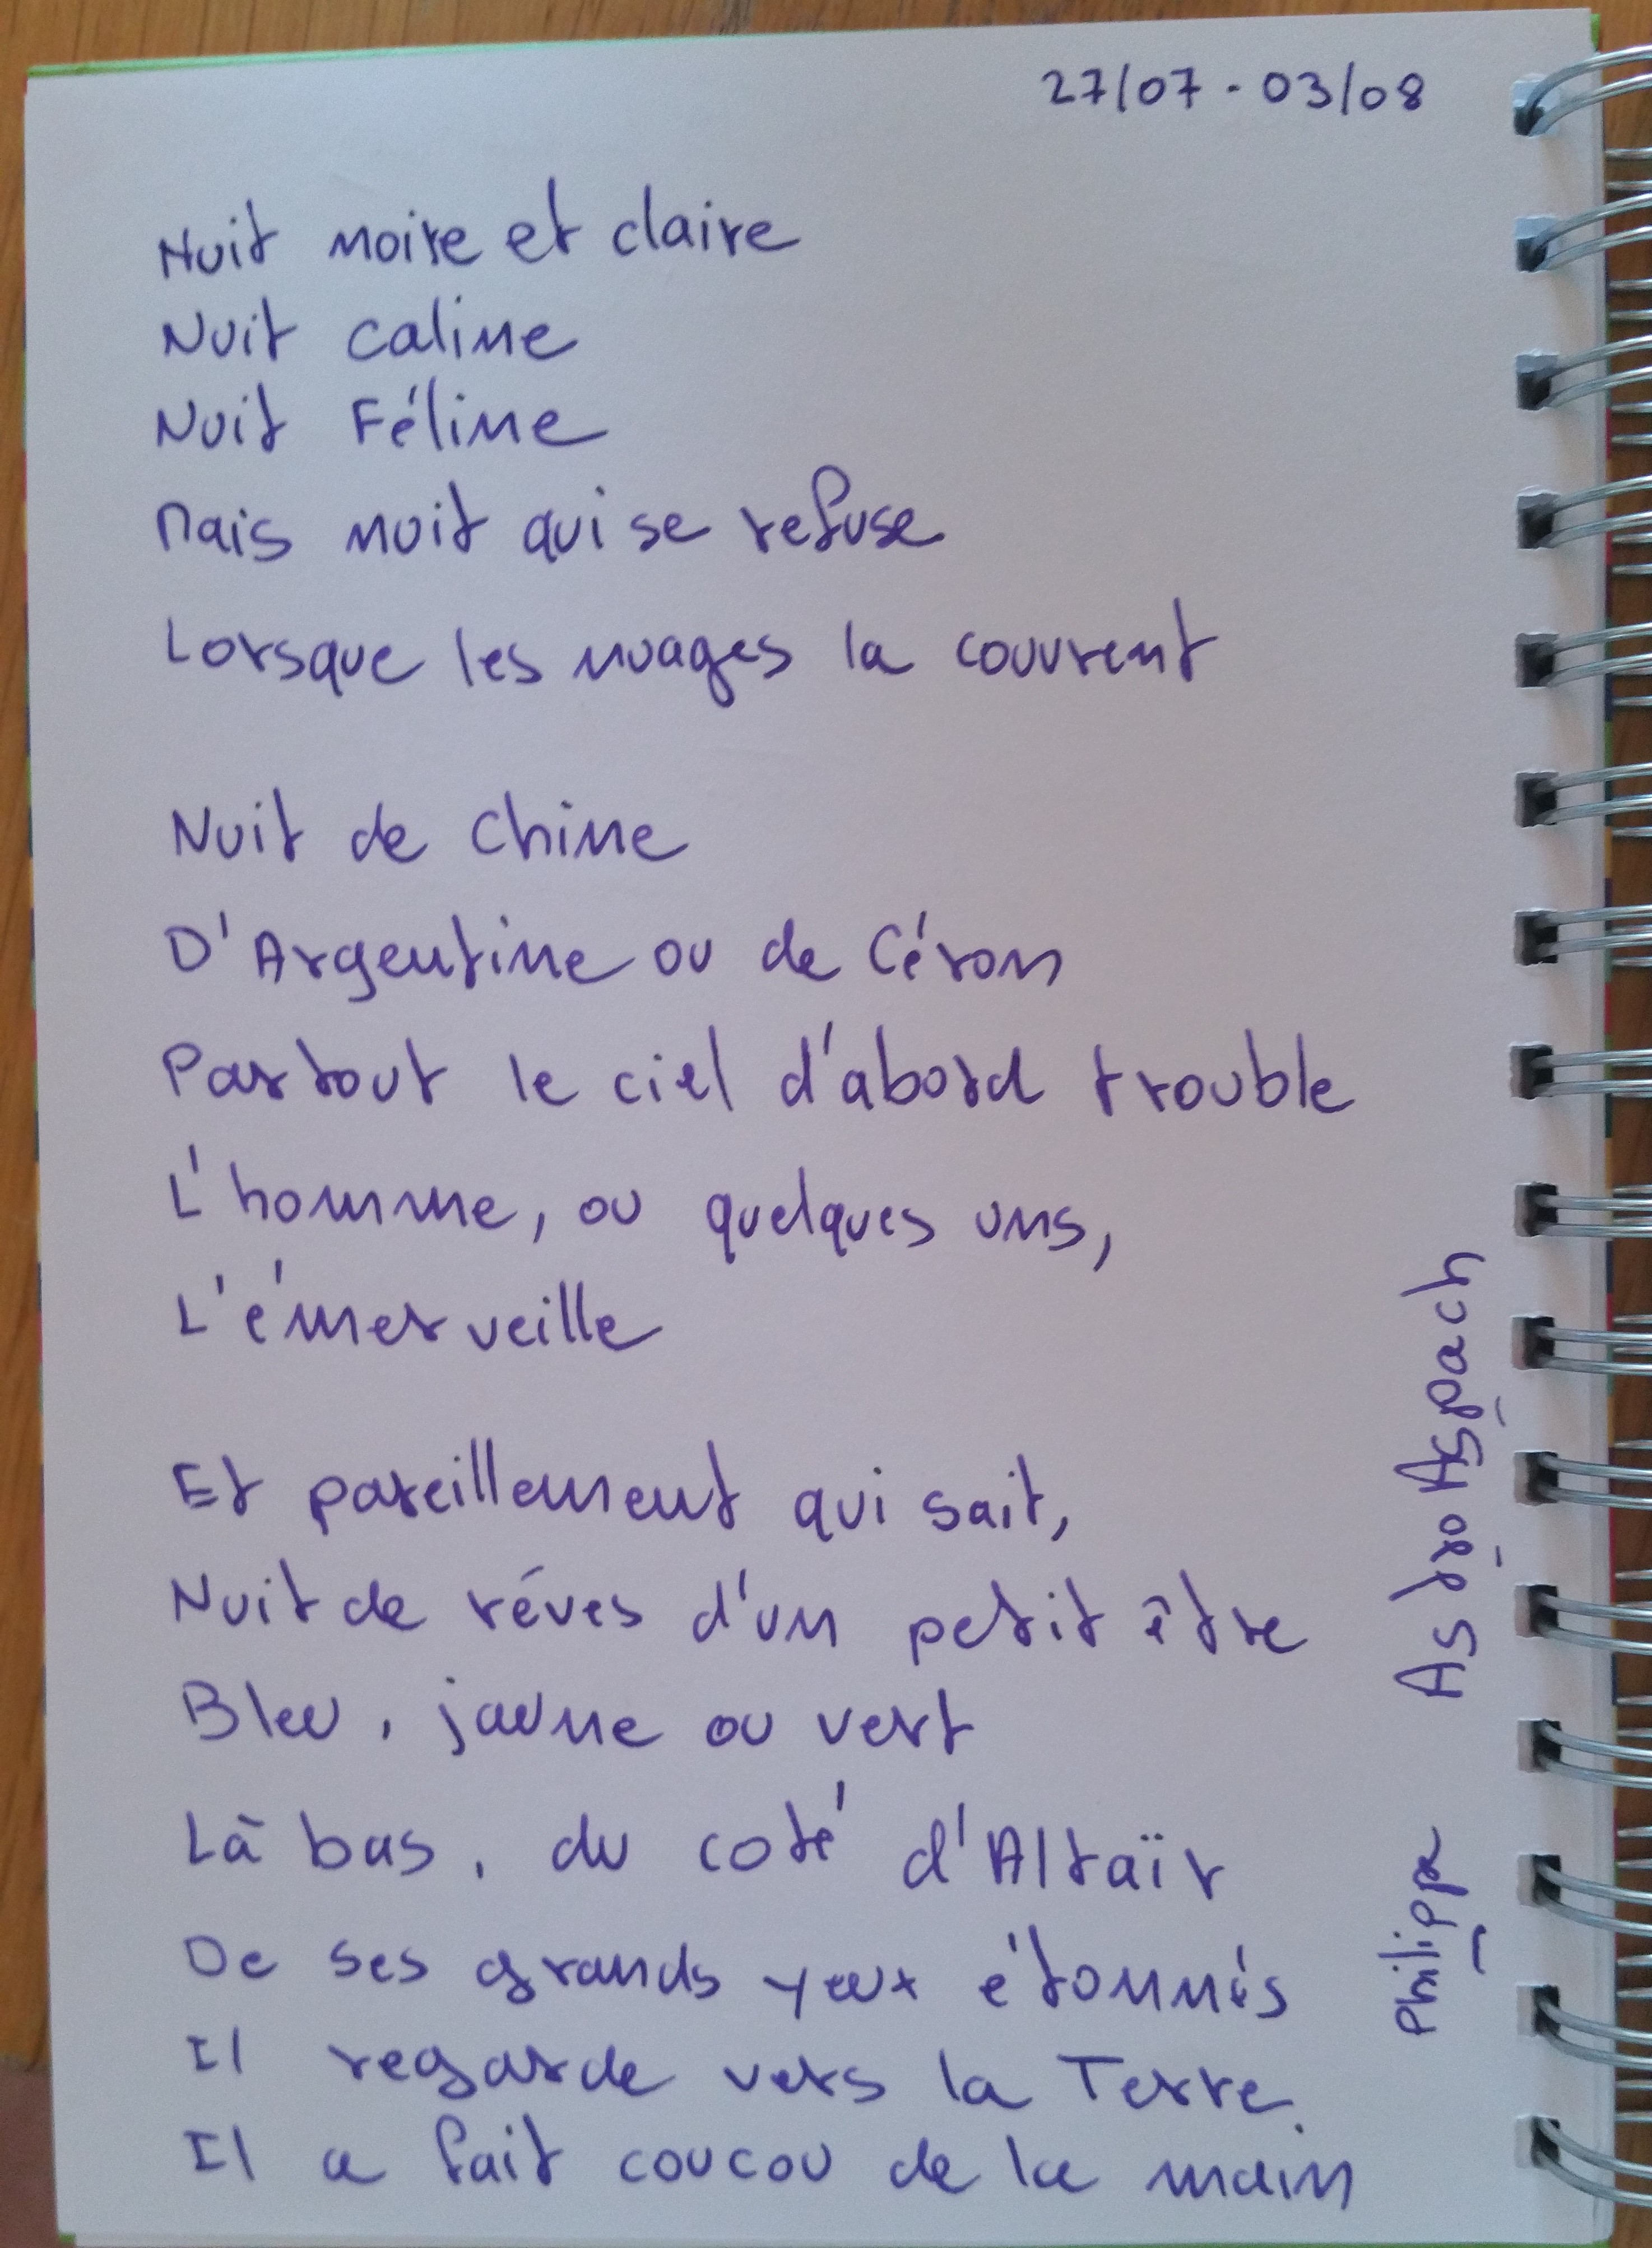 27/07 - 03/08
Nuit noire et claire
Nuit caline
Nuit Féline
Mais nuit qui se refuse
Lorsque les nuages la couvrent
Nuit de Chine
D'Argentine ou de Céron
Partout le ciel d'abord trouble
L'homme, ou quelques uns,
L'émerveille
Et pareillement qui sait,
Nuit de réves d'un petit être
Bleu, jaune ou vert
Là bas, du coté d'Altaïr
De ses grands yeux étonnés
Il regarde vers la Terre.
Il a fait coucou de la main
Philippe Astro Aspach